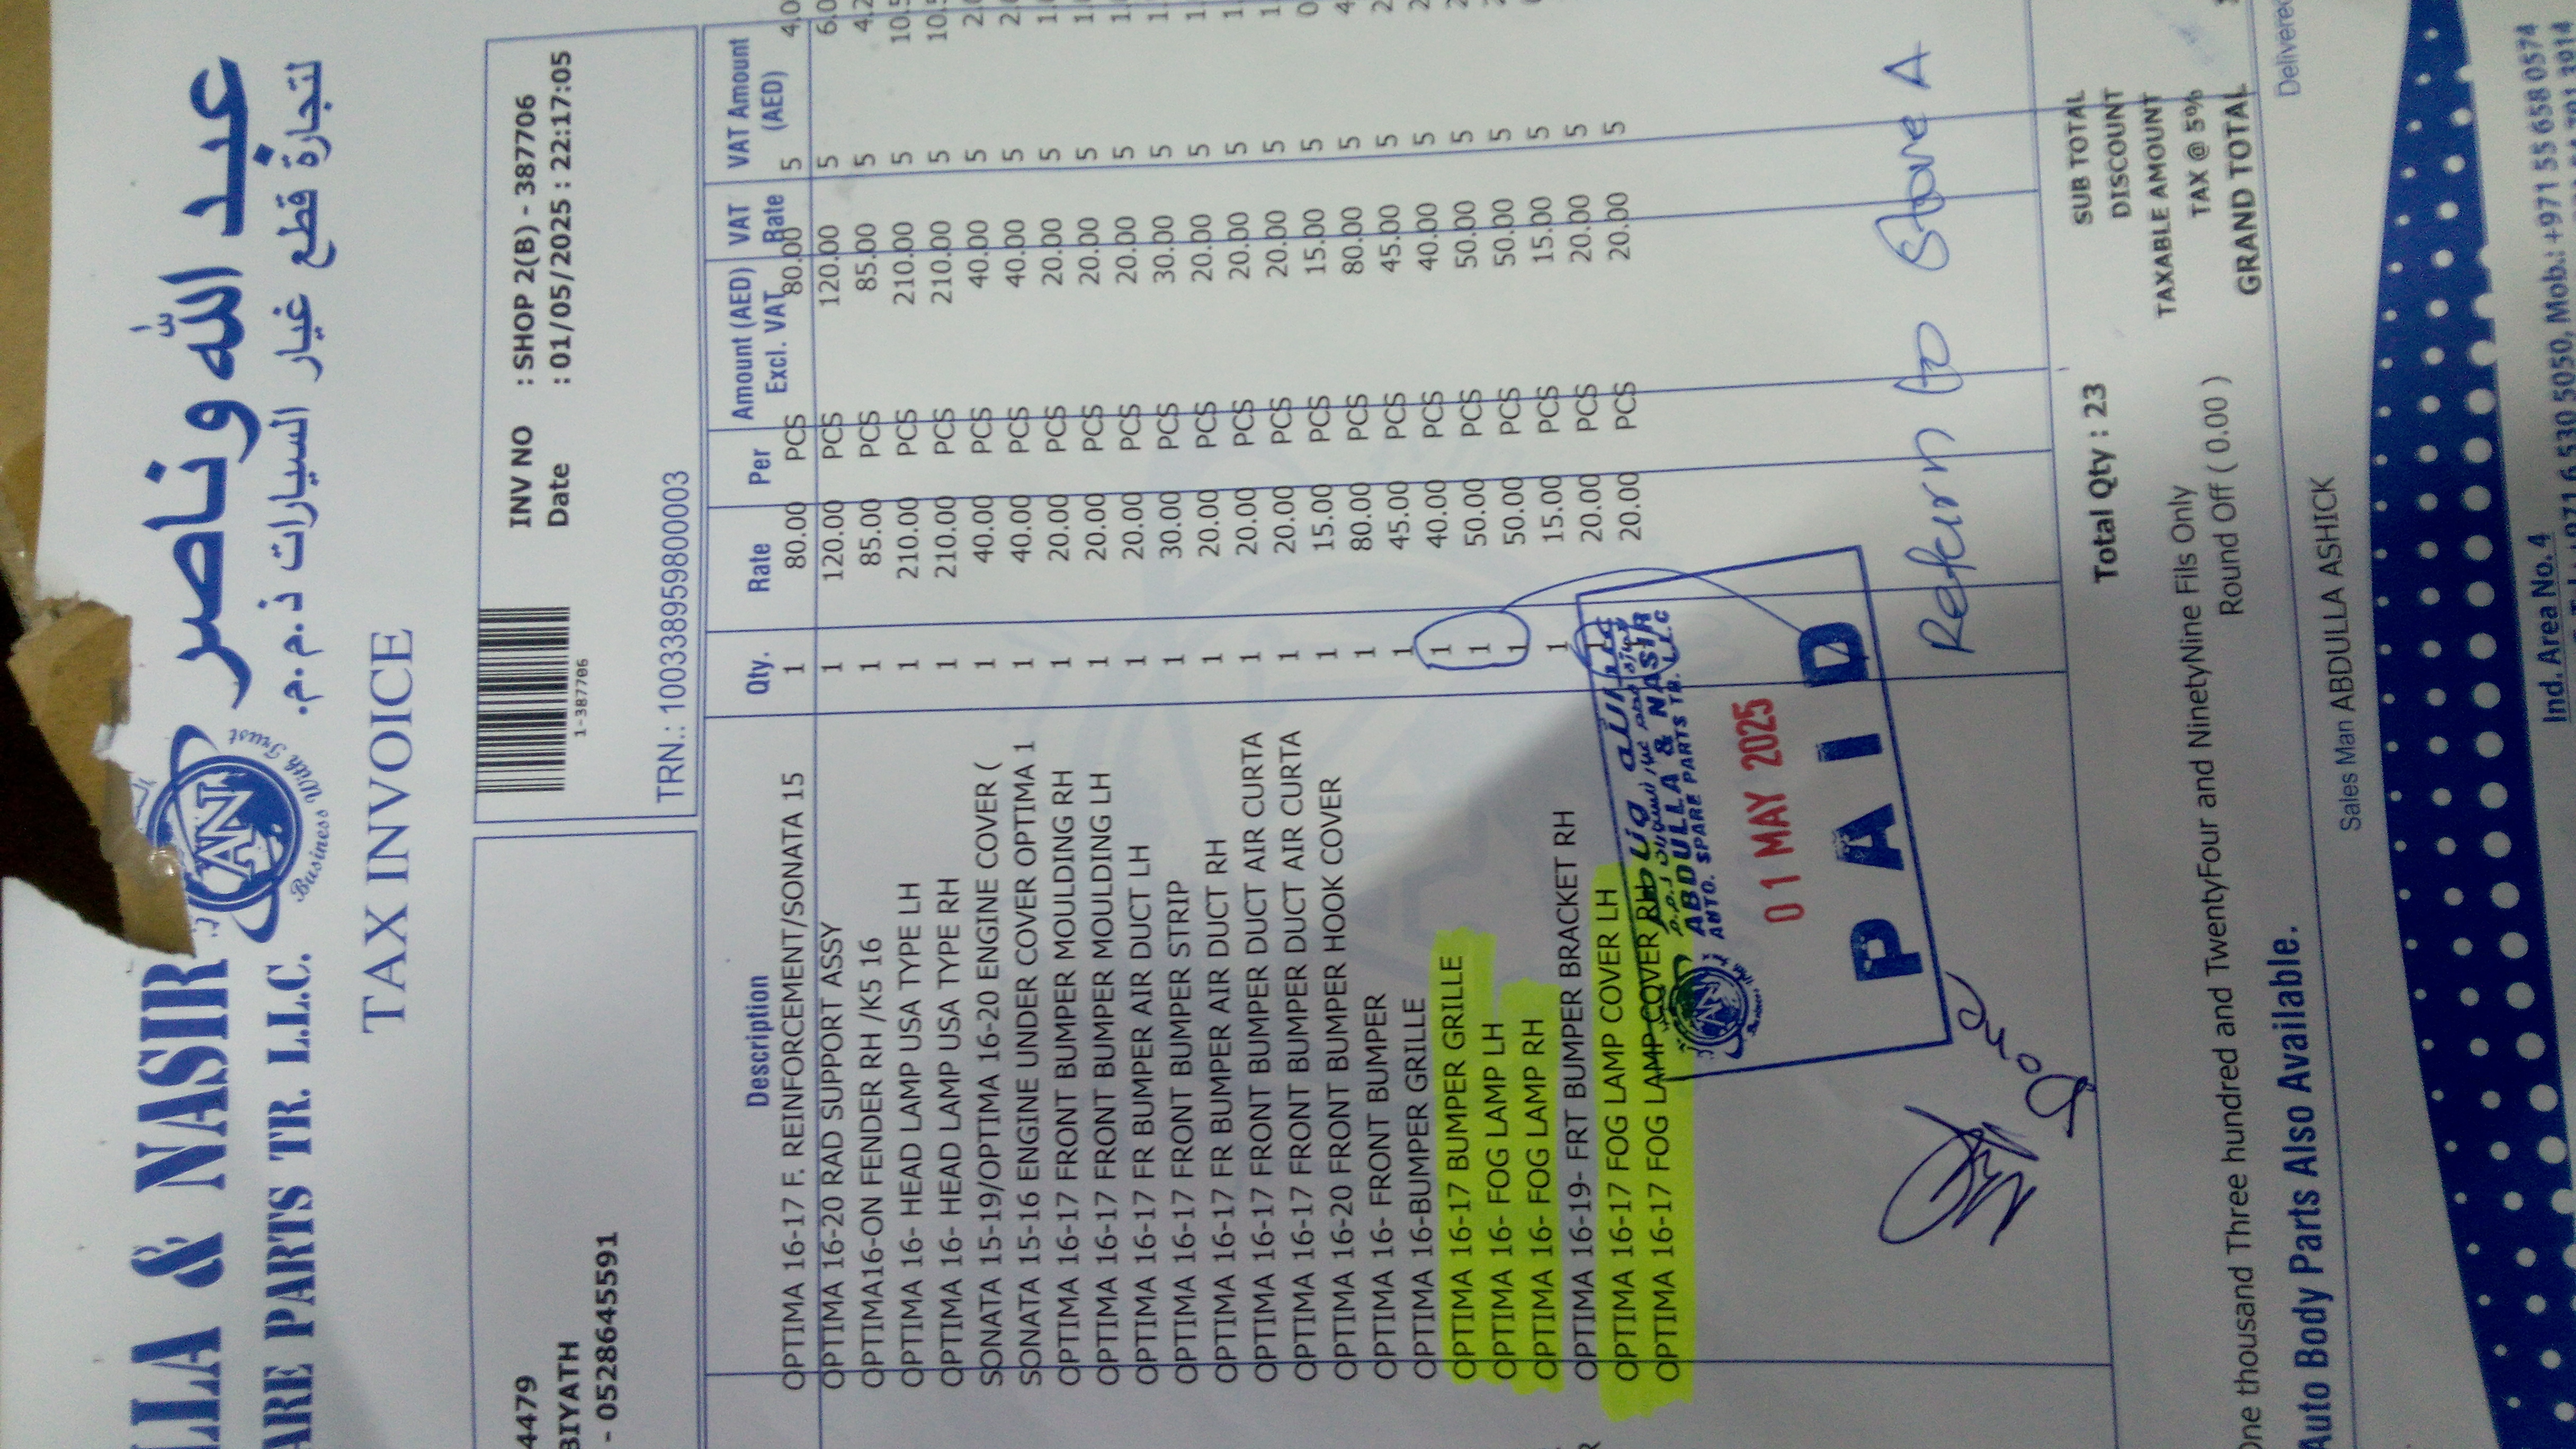 عبد الله وناصر
لتجارة قطع غيار السيارات ذ.م.م.
LLA & NASIR
ARE PARTS TR. L.L.C.
AN
Business With Trust
TAX INVOICE
4479
BIYATH
- 0528645591
1-387706
INV NO : SHOP 2(B) - 387706
Date : 01/05/2025 : 22:17:05
TRN.: 100338959800003
Description Qty. Rate Per Amount (AED) Excl. VAT VAT Rate VAT Amount (AED)
OPTIMA 16-17 F. REINFORCEMENT/SONATA 15 1 80.00 PCS 80.00 5 4.0
OPTIMA 16-20 RAD SUPPORT ASSY 1 120.00 PCS 120.00 5 6.0
OPTIMA16-ON FENDER RH /K5 16 1 85.00 PCS 85.00 5 4.2
OPTIMA 16- HEAD LAMP USA TYPE LH 1 210.00 PCS 210.00 5 10.5
OPTIMA 16- HEAD LAMP USA TYPE RH 1 210.00 PCS 210.00 5 10.5
SONATA 15-19/OPTIMA 16-20 ENGINE COVER ( 1 40.00 PCS 40.00 5 2.0
SONATA 15-16 ENGINE UNDER COVER OPTIMA 1 1 40.00 PCS 40.00 5 2.0
OPTIMA 16-17 FRONT BUMPER MOULDING RH 1 20.00 PCS 20.00 5 1.0
OPTIMA 16-17 FRONT BUMPER MOULDING LH 1 20.00 PCS 20.00 5 1.0
OPTIMA 16-17 FR BUMPER AIR DUCT LH 1 20.00 PCS 20.00 5 1.
OPTIMA 16-17 FRONT BUMPER STRIP 1 30.00 PCS 30.00 5 1.
OPTIMA 16-17 FR BUMPER AIR DUCT RH 1 20.00 PCS 20.00 5 1.
OPTIMA 16-17 FRONT BUMPER DUCT AIR CURTA 1 20.00 PCS 20.00 5 1.
OPTIMA 16-17 FRONT BUMPER DUCT AIR CURTA 1 20.00 PCS 20.00 5 1
OPTIMA 16-20 FRONT BUMPER HOOK COVER 1 15.00 PCS 15.00 5 0
OPTIMA 16- FRONT BUMPER 1 80.00 PCS 80.00 5 4
OPTIMA 16-BUMPER GRILLE 1 45.00 PCS 45.00 5 2
OPTIMA 16-17 BUMPER GRILLE 1 40.00 PCS 40.00 5 2
OPTIMA 16- FOG LAMP LH 1 50.00 PCS 50.00 5
OPTIMA 16- FOG LAMP RH 1 50.00 PCS 50.00 5
OPTIMA 16-19- FRT BUMPER BRACKET RH 1 15.00 PCS 15.00 5
OPTIMA 16-17 FOG LAMP COVER LH 1 20.00 PCS 20.00 5
OPTIMA 16-17 FOG LAMP COVER RH 20.00 PCS 20.00 5
ABDULLA & NASIR
AUTO. SPARE PARTS TR. L.L.C
01 MAY 2025
PAID
Return to Store A
Total Qty : 23
SUB TOTAL
DISCOUNT
TAXABLE AMOUNT
TAX @ 5%
GRAND TOTAL
One thousand Three hundred and TwentyFour and NinetyNine Fils Only
Round Off ( 0.00 )
Auto Body Parts Also Available.
Sales Man ABDULLA ASHICK
Delivered
Ind. Area No. 4
+971 6 530 5050, Mob.: +971 55 658 0574